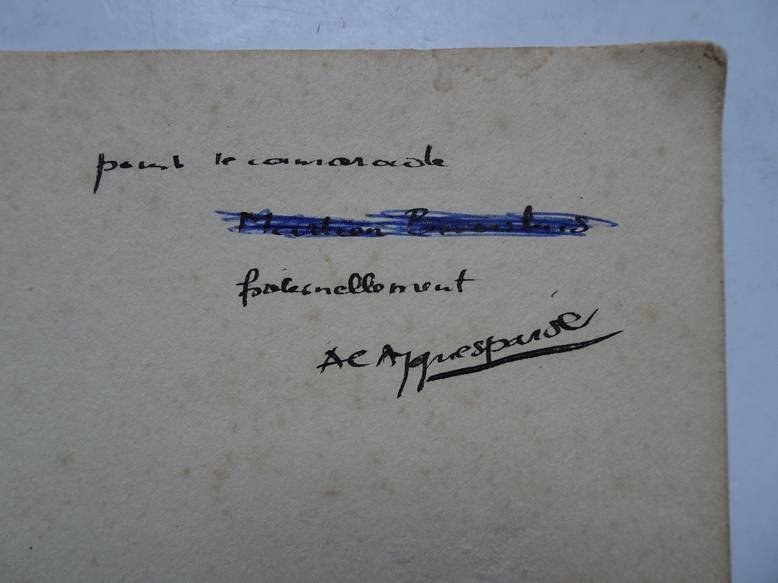 pour le camarade
fraternellement
A C Ayguesparse